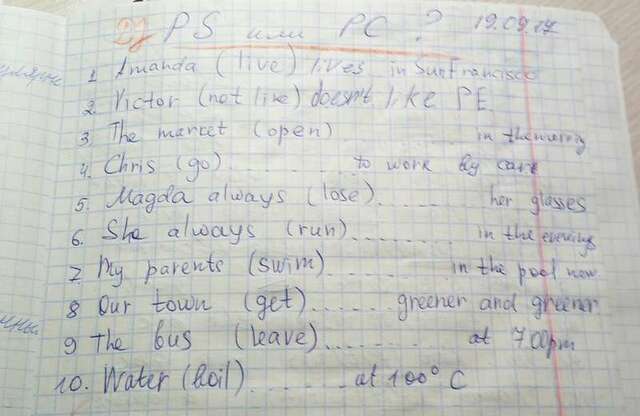 PS или PC ? 19.09.17
1. Amanda (live) lives in San Francisco
2. Victor (not like) doesn't like PE
3. The market (open) .......... in the morning
4. Chris (go) .......... to work by car
5. Magda always (lose) .......... her glasses
6. She always (run) .......... in the evenings
7. My parents (swim) .......... in the pool now
8 Our town (get) ....... greener and greener
9 The bus (leave) .......... at 7.00pm
10. Water (boil) .......... at 100° C